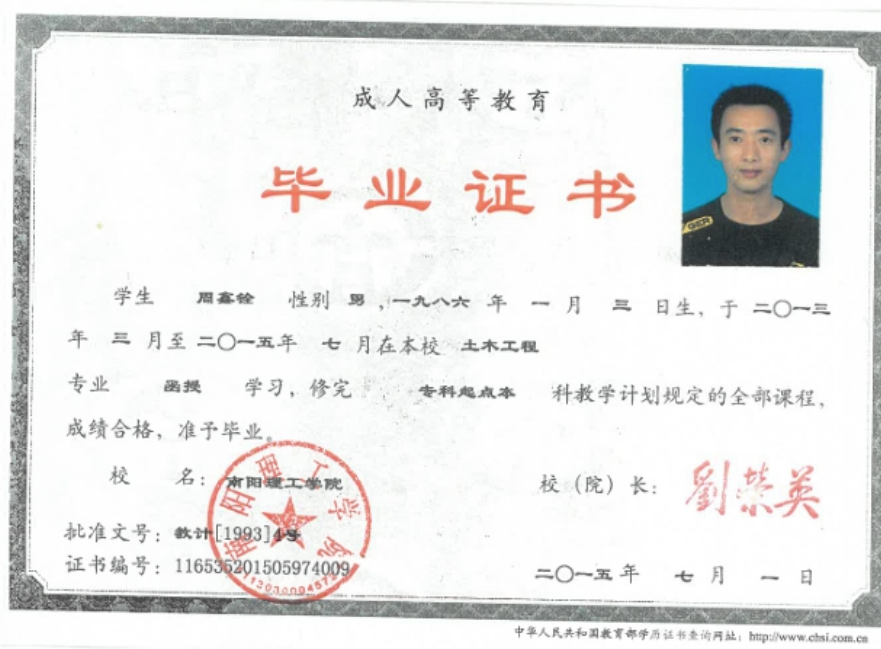 成人高等教育
毕业证书
学生 周鑫铨 性别 男，一九八六 年 一 月 三 日生，于 二〇一三
年 三 月至 二〇一五年 七 月在本校 土木工程
专业 函授 学习，修完 专科起点本 科教学计划规定的全部课程，
成绩合格，准予毕业。
校 名： 南阳理工学院
校（院）长： 劉荣英
批准文号：教计[1993]4号
证书编号：116535201505974009
二〇一五年 七 月 一 日
南阳理工学院
中华人民共和国教育部学历证书查询网址：http://www.chsi.com.cn